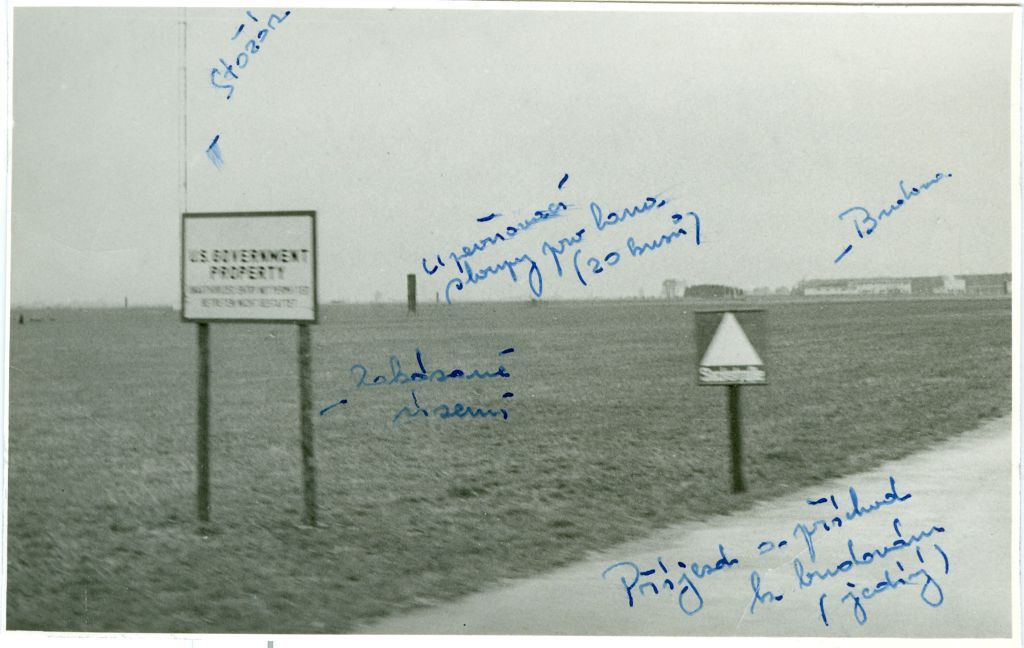 Stožár
U.S. GOVERNMENT
PROPERTY
UNAUTHORIZED ENTRY NOT PERMITTED
BETRETEN NICHT GESTATTET
Upevňovací
sloupy pro lana
(20 kusů)
Budova
Zakázané
území
Příjezd a příchod
k budovám
(jediný)